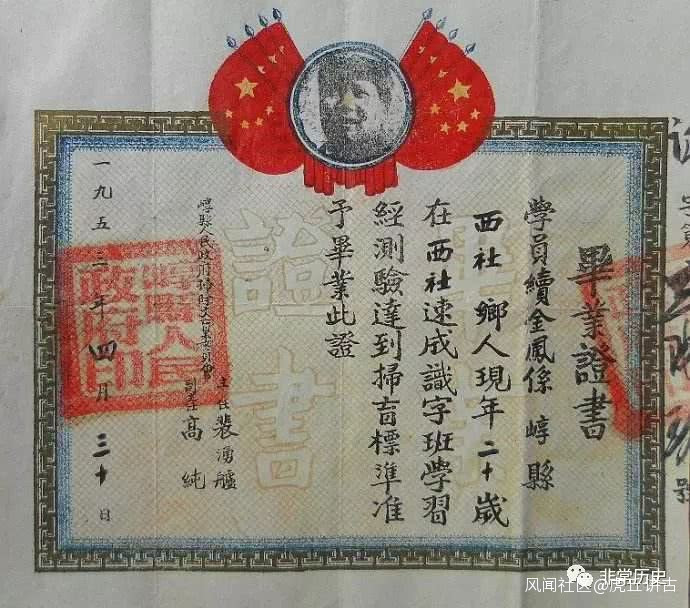 畢業證書
學員續金鳳係 崞縣
西社鄉人現年二十歲
在西社速成識字班學習
經測驗達到掃盲標準准
予畢業此證
崞縣人民政府掃除文盲委員會
主任 裴湧
副主任 高純
一九五三年四月三十日
崞縣人民政府印
證書
字第
號
非常历史
风闻社区@虎丘讲古